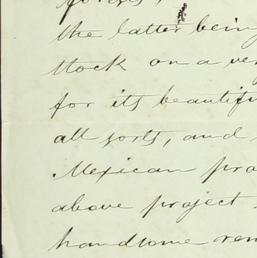 the latter being
stock on a
for its beautiful
all sorts, and
Mexican
above project
handsome